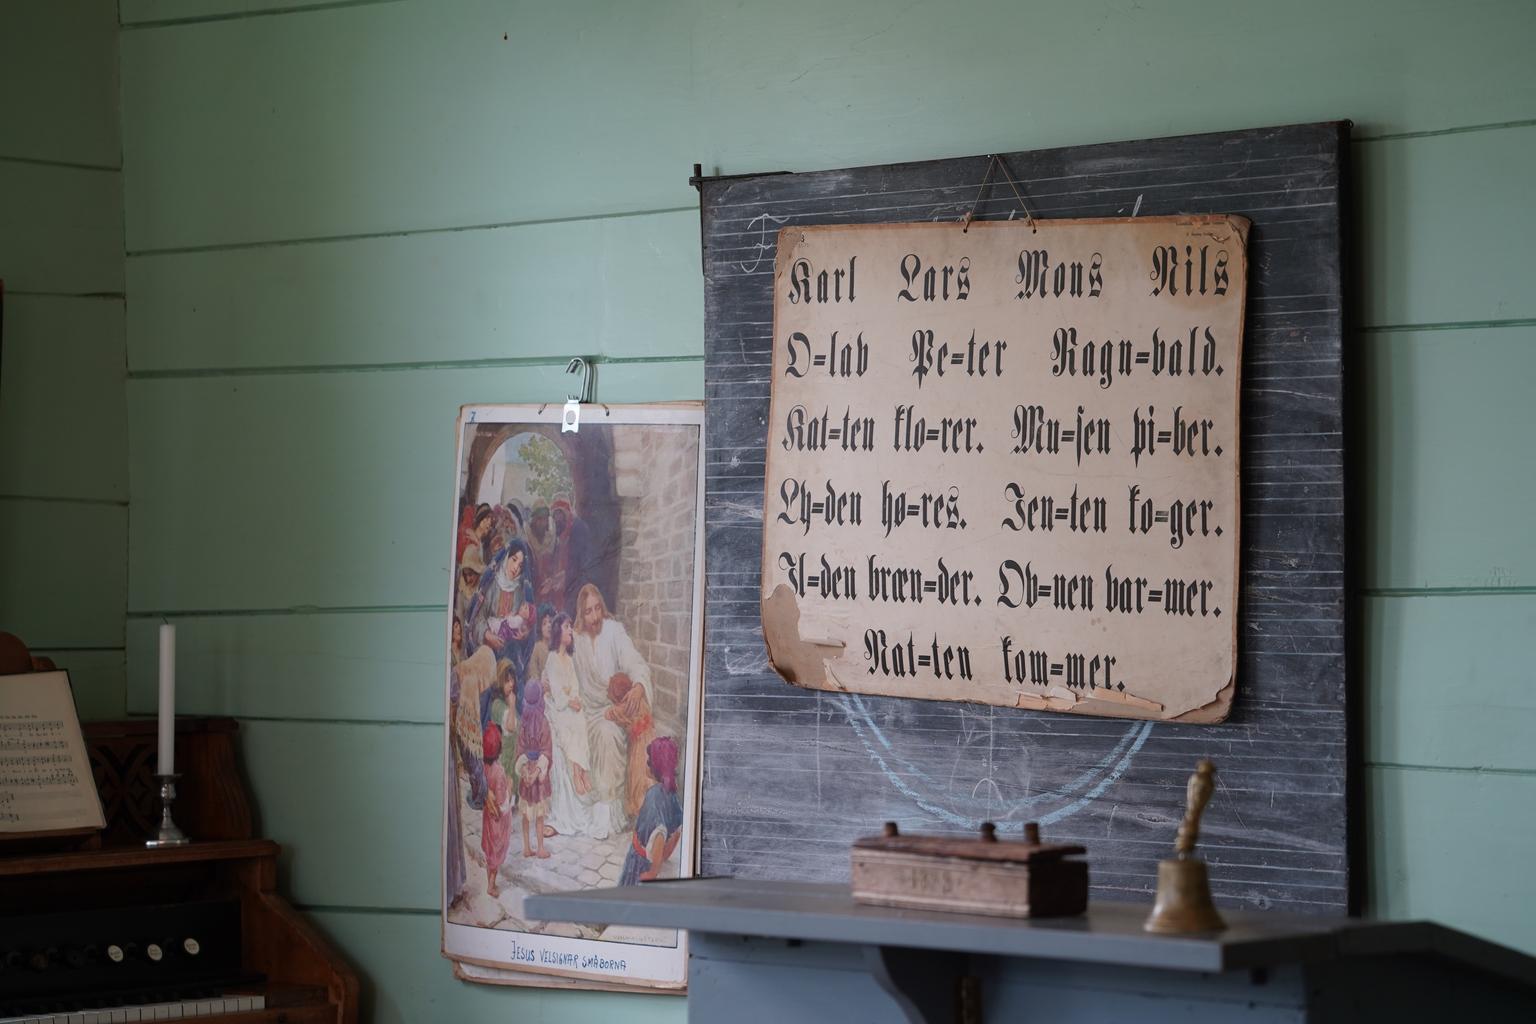 Karl Lars Mons Nils
O=lav Pe=ter Ragn=vald.
Kat=ten klo=rer. Mu=sen pi=ber.
Ly=den hø=res. Jen=ten ko=ger.
Il=den bræn=der. Ov=nen var=mer.
Nat=ten kom=mer.
7
JESUS VELSIGNAR SMÅBORNA